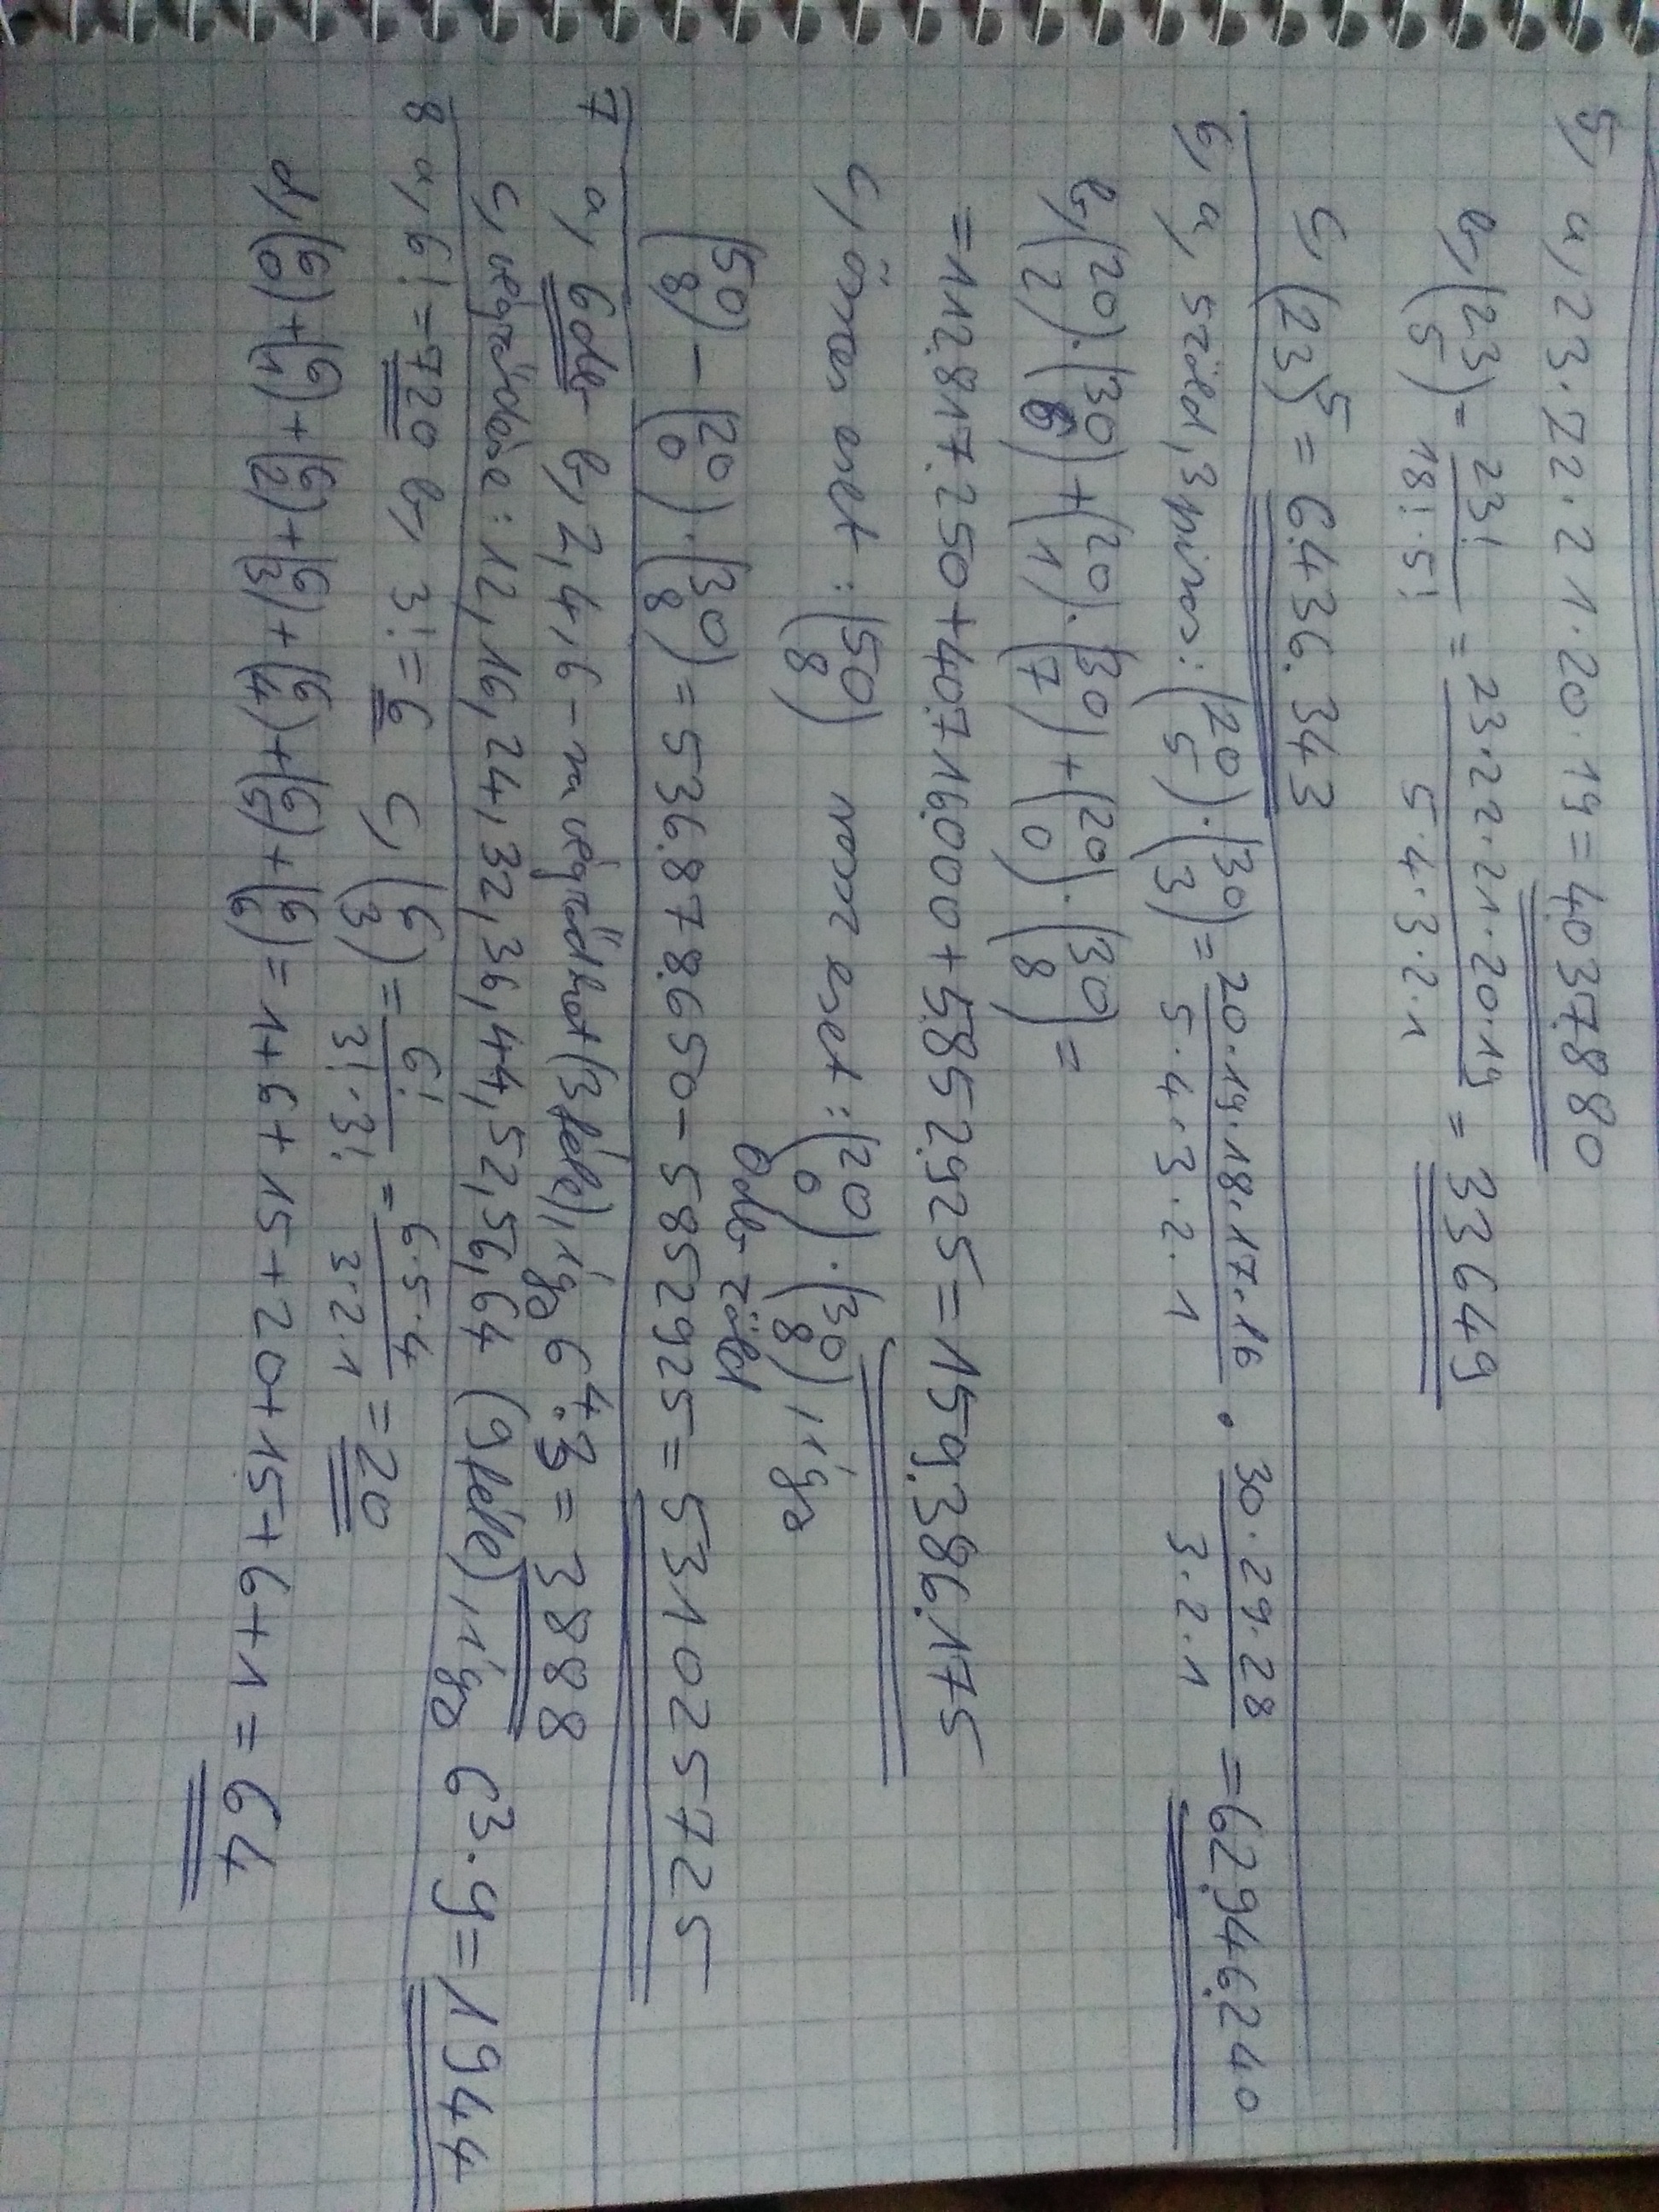 5, a, 23·22·21·20·19=4.037.880
b, (23 5) = 23!/18!·5! = 23·22·21·20·19/5·4·3·2·1 = 33649
c, (23)⁵ = 6.436.343
6, a, 5zöld, 3piros: (20 5)·(30 3) = 20·19·18·17·16/5·4·3·2·1 · 30·29·28/3·2·1 = 62.946.240
b, (20 2)·(30 6)+(20 1)·(30 7)+(20 0)·(30 8) =
=112.817.250+40.716.000+5.852.925=159.386.175
c, összes eset: (50 8) rossz eset: (20 0)·(30 8), így
0 db zöld
(50 8) - (20 0)·(30 8) = 536.878.650-5852925=531025725
7 a, 6db b, 2,4,6-ra végződhet(3féle), így 6⁴·3 = 3888
c, végződése: 12,16,24,32,36,44,52,56,64 (9féle), így 6³·9=1944
8 a, 6!=720 b, 3!=6 c, (6 3) = 6!/3!·3! = 6·5·4/3·2·1 = 20
d, (6 0)+(6 1)+(6 2)+(6 3)+(6 4)+(6 5)+(6 6)=1+6+15+20+15+6+1=64